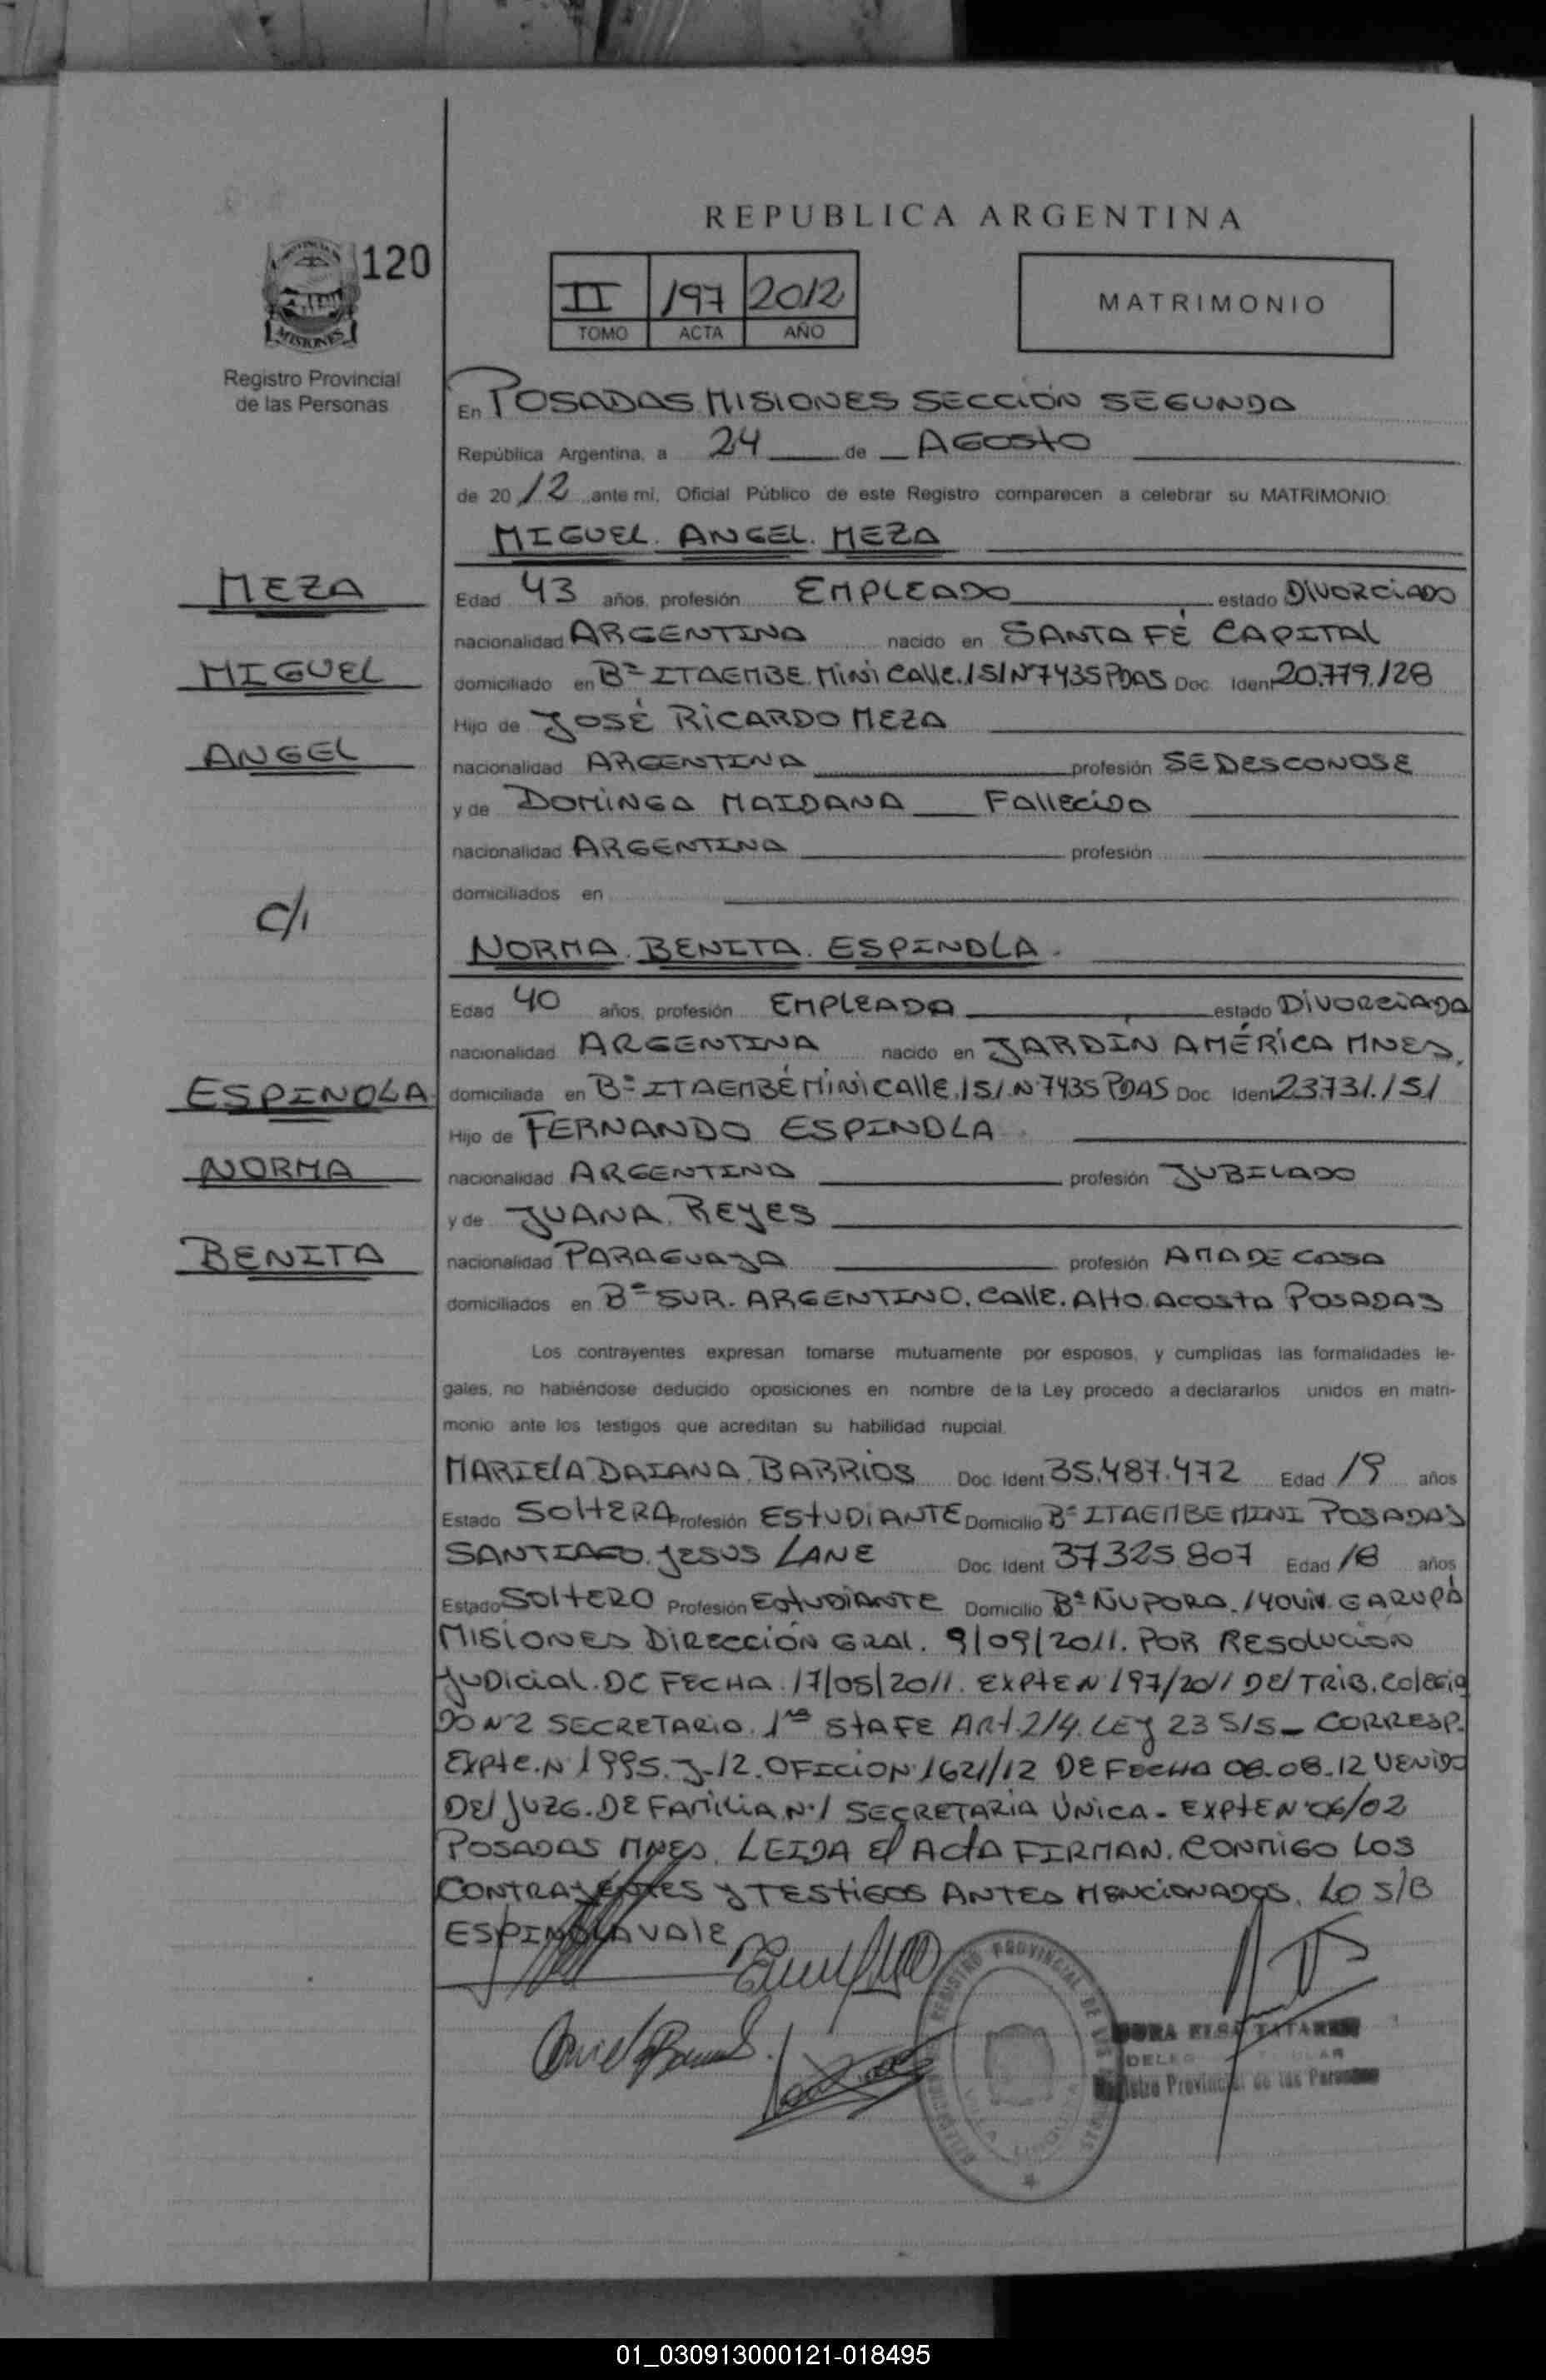 REPUBLICA ARGENTINA
120
MISIONES
Registro Provincial
de las Personas
II 197 2012
TOMO ACTA AÑO
MATRIMONIO
En POSADAS MISIONES SECCIÓN SEGUNDA
República Argentina, a 24 de AGOSTO
de 2012 ante mi, Oficial Público de este Registro comparecen a celebrar su MATRIMONIO
MIGUEL. ANGEL. MEZA
MEZA
Edad 43 años, profesión EMPLEADO estado DIVORCIADO
nacionalidad ARGENTINA nacido en SANTA FÉ CAPITAL
MIGUEL
domiciliado en Bº ITAEMBE MINI CALLE.151 Nº7435 PDAS Doc. Ident 20.779.128
Hijo de JOSÉ RICARDO MEZA
ANGEL
nacionalidad ARGENTINA profesión SE DESCONOSE
y de DOMINGA MAIDANA FALLECIDA
nacionalidad ARGENTINA profesión
domiciliados en
C/1
NORMA. BENITA. ESPINOLA.
Edad 40 años, profesión EMPLEADA estado DIVORCIADA
nacionalidad ARGENTINA nacido en JARDIN AMÉRICA MNES.
ESPINOLA
domiciliada en Bº ITAEMBÉ MINI CALLE.151.Nº7435 PDAS Doc. Ident 23.731.151
Hijo de FERNANDO ESPINOLA
NORMA
nacionalidad ARGENTINA profesión JUBILADO
y de JUANA. REYES
BENITA
nacionalidad PARAGUAYA profesión AMA DE CASA
domiciliados en Bº SUR. ARGENTINO. CALLE. ALTO. ACOSTA POSADAS
Los contrayentes expresan tomarse mutuamente por esposos, y cumplidas las formalidades le-
gales, no habiéndose deducido oposiciones en nombre de la Ley procedo a declararlos unidos en matri-
monio ante los testigos que acreditan su habilidad nupcial.
MARIELA DAIANA. BARRIOS Doc. Ident 35.487.472 Edad 19 años
Estado SOLTERA Profesión ESTUDIANTE Domicilio Bº ITAEMBE MINI POSADAS
SANTIAGO. JESUS LANE Doc. Ident 37.325.807 Edad 18 años
Estado SOLTERO Profesión ESTUDIANTE Domicilio Bº ÑUPORA. 140 VIV. GARUPÁ
MISIONES DIRECCIÓN GRAL. 9/09/2011. POR RESOLUCION
JUDICIAL. DE FECHA. 17/05/2011. EXPTE Nº 197/2011 DEL TRIB. COLEGIA
DO Nº2 SECRETARIO. 1ra STA FE ART. 214. LEY 23515_ CORRESP.
EXPTE. Nº 1995. J-12. OFICIO Nº 1621/12 DE FECHA 08.08.12 VENIDO
DEL JUZG. DE FAMILIA Nº1 SECRETARIA ÚNICA - EXPTE Nº 06/02
POSADAS MNES. LEIDA EL ACTA FIRMAN. CONMIGO LOS
CONTRAYENTES Y TESTIGOS ANTES MENCIONADOS. LO S/B
ESPINOLA VALE
REGISTRO PROVINCIAL DE LAS
ELSA
Registro Provincial de las Personas
01_030913000121-018495